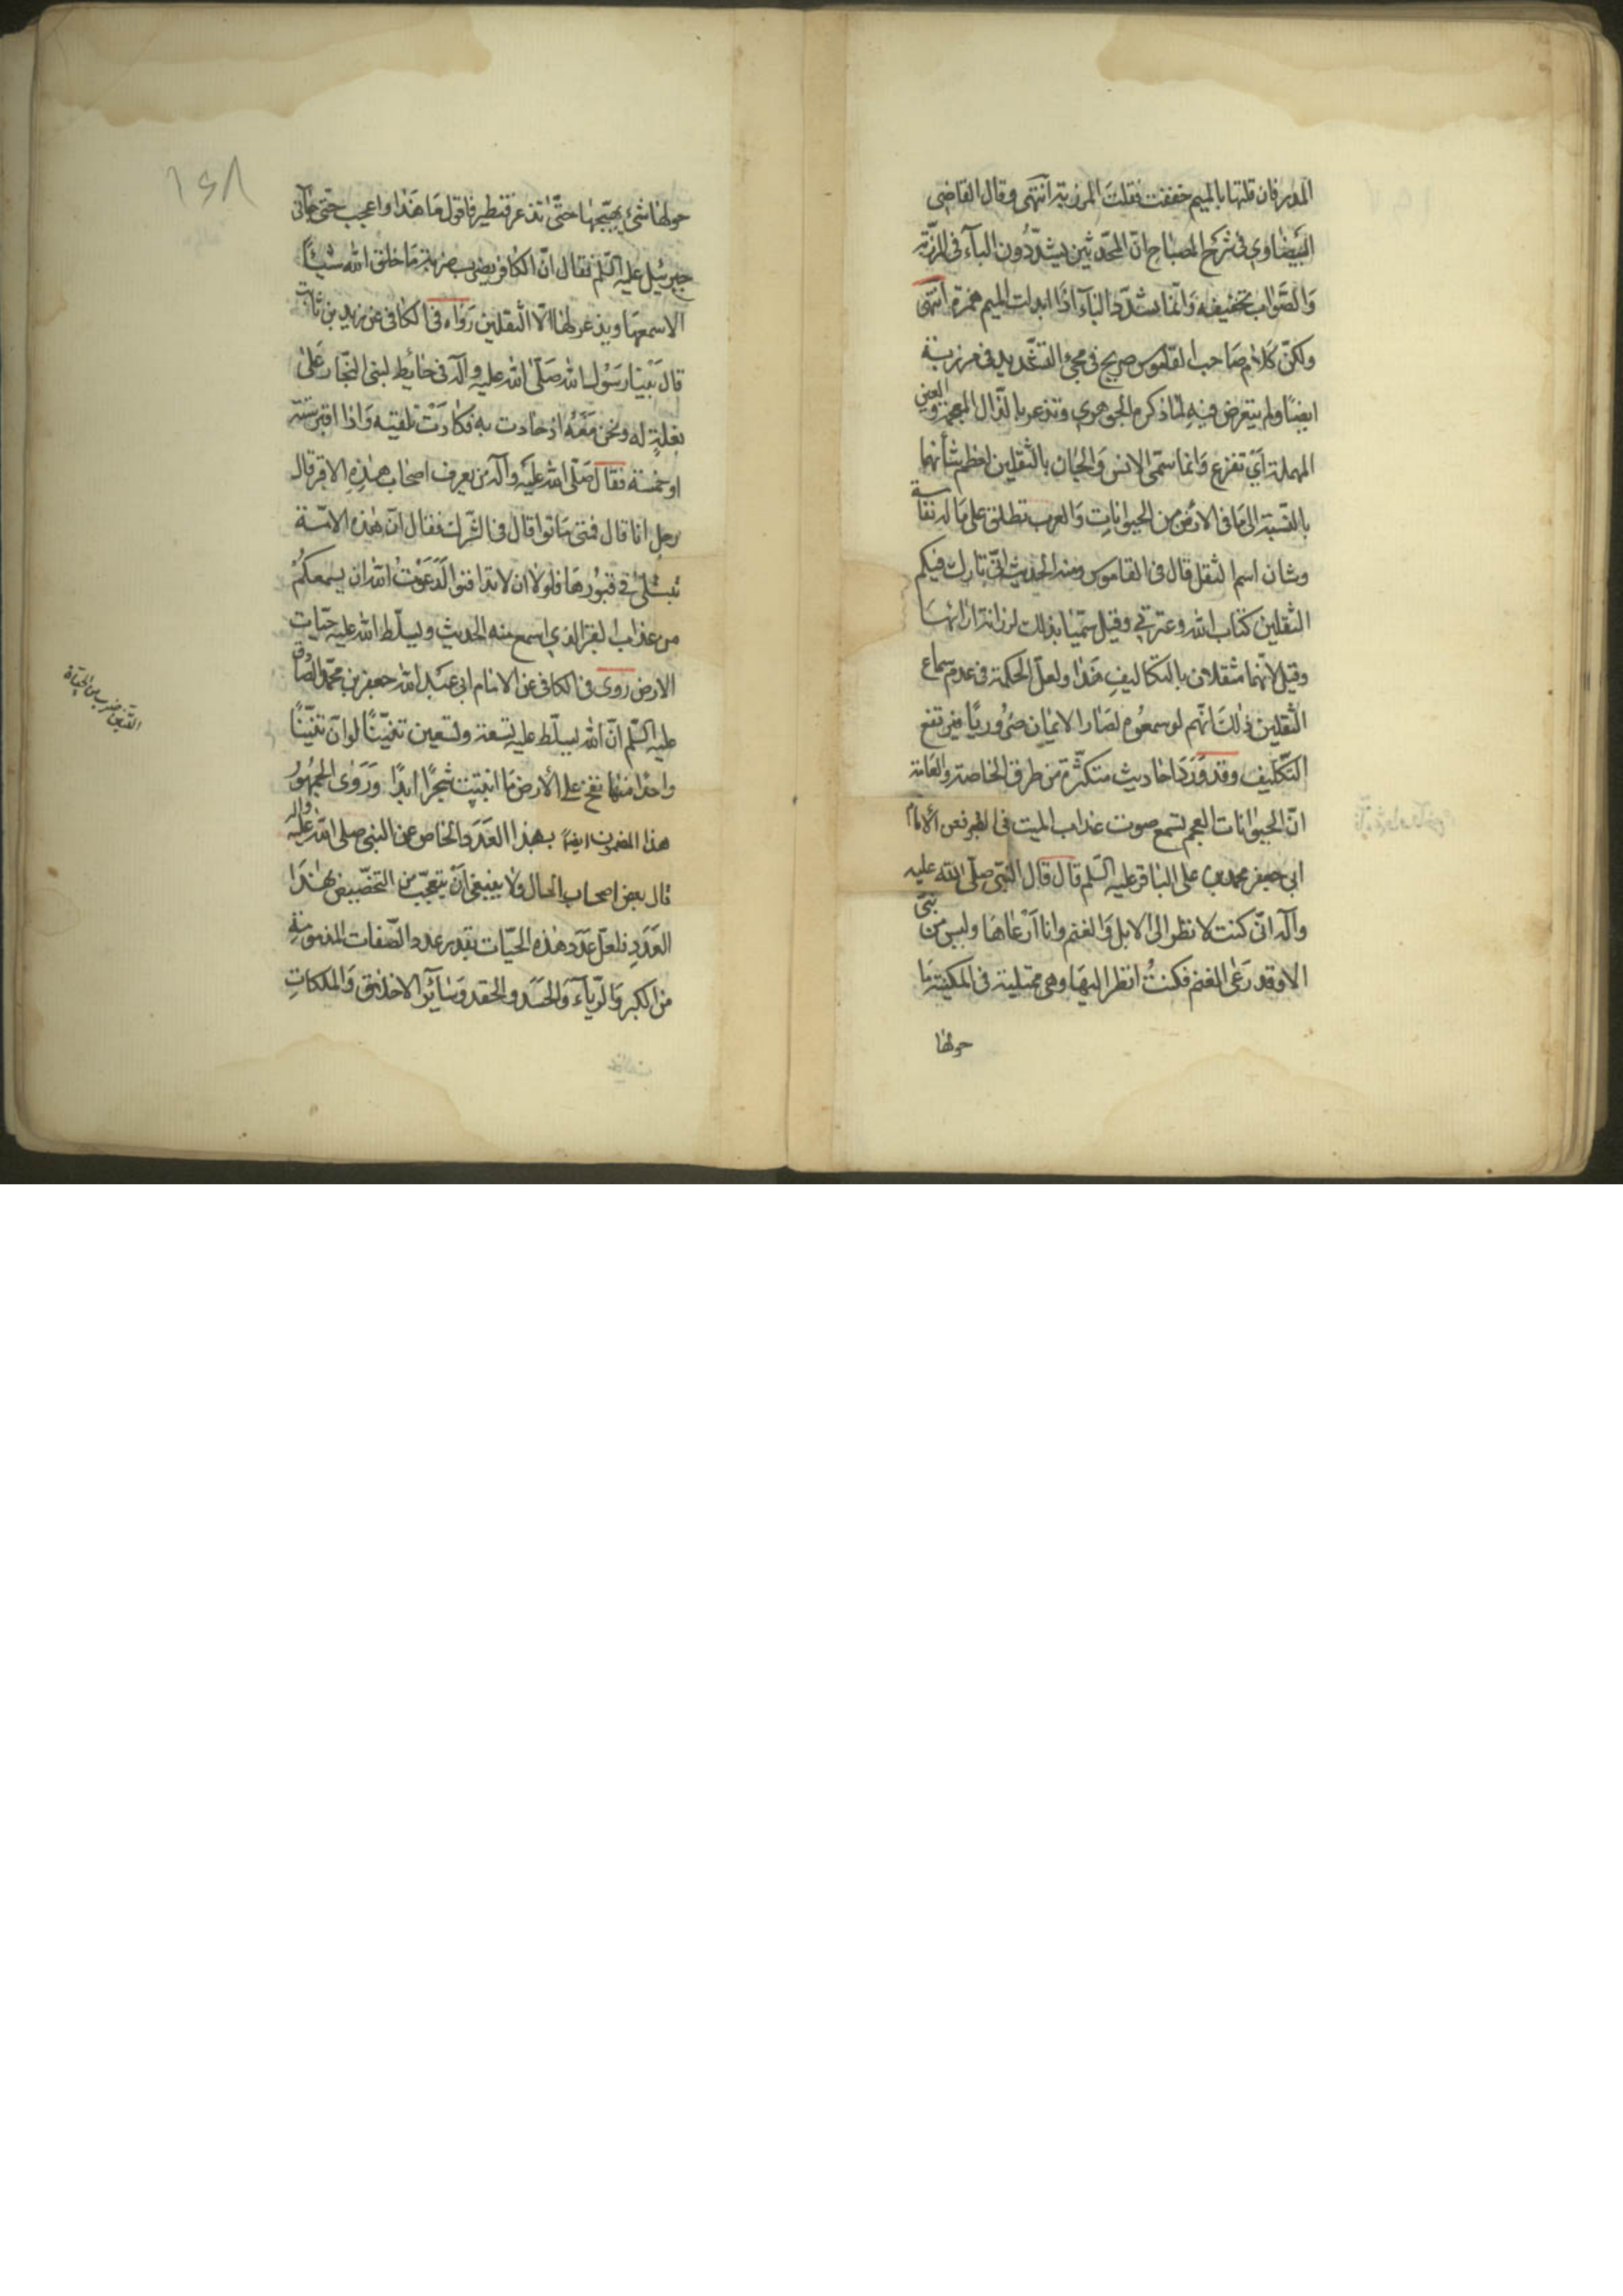 المدر فان قلتها بالميم خففت فقلت المرزبة انتهى وقال القاضى
البيضاوي في شرح المصباح ان المحدثين يشددون الباء فى المرزبة
والصواب تخفيفه وانما يشدد الباء اذا ابدلت الميم همزة انتهى
ولكن كلام صاحب القاموس صريح في مجئ التشديد في مرزبة
ايضا ولم يتعرض فيه لما ذكره الجوهري وتذعر بالذال المعجمة والعين
المهملة اي تفزع وانما سمى الانس والجان بالثقلين لعظم شأنهما
بالنسبة الى ما في الارض من الحيوانات والعرب تطلق على ما له نفاسة
وشان اسم الثقل قال فى القاموس ومنه الحديث انى تارك فيكم
الثقلين كتاب الله وعترتي وقيل سميا بذلك لرزانة ارائهما
وقيل لانهما مثقلان بالتكاليف هذا ولعل الحكمة في عدم سماع
الثقلين ذلك انهم لو سمعوه لصار الايمان ضروريا فيرتفع
التكليف وقد ورد احاديث متكثرة من طرق الخاصة والعامة
ان الحيوانات العجم تسمع صوت عذاب الميت فى القبر فعن الامام
ابي جعفر محمد بن على الباقر عليه السلم قال قال النبى صلى الله عليه
وآله انى كنت لانظر الى الابل والغنم وانا ارعاها وليس من نبى
الا وقد رعى الغنم فكنت انظر اليها وهى ممتلية فى المكينة ما
حولها
١٤٨
حولها شئ يهيجها حتى تذعر فتطير فاقول ما هذا واعجب حتى جاءنى
جبرئيل عليه السلم فقال ان الكافر يضرب ضربة ما خلق الله شيئا
الا سمعها ويذعر لها الا الثقلين رواه فى الكافى عن زيد بن ثابت
قال بينا رسول الله صلى الله عليه وآله فى حائط لبنى النجار على
بغلة له ونحن معه اذ حادت به فكادت تلقيه واذا اقبر ستة
او خمسة فقال صلى الله عليه وآله من يعرف اصحاب هذه الاقبر قال
رجل انا قال فمتى ماتوا قال فى الشرك فقال ان هذه الامة
تبتلى في قبورها فلولا ان لا تدافنوا لدعوت الله ان يسمعكم
من عذاب القبر الذي اسمع منه الحديث ويسلط الله عليه حيات
الارض روى فى الكافى عن الامام ابى عبد الله جعفر بن محمد الصادق
عليه السلم ان الله يسلط عليه تسعة وتسعين تنينا لو ان تنينا
واحدا منها نفخ على الأرض ما انبتت شجرا ابدا وروى الجمهور
هذا المضمون ايضا بهذا العدد الخاص عن النبى صلى الله عليه وآله
قال بعض اصحاب الحال ولا ينبغى ان يتعجب من التخصيص بهذا
العدد فلعل عدد هذه الحيات بقدر عدد الصفات المذمومة
من الكبر والرياء والحسد والحقد وسائر الاخلاق والملكات
التنين ضرب من الحياة